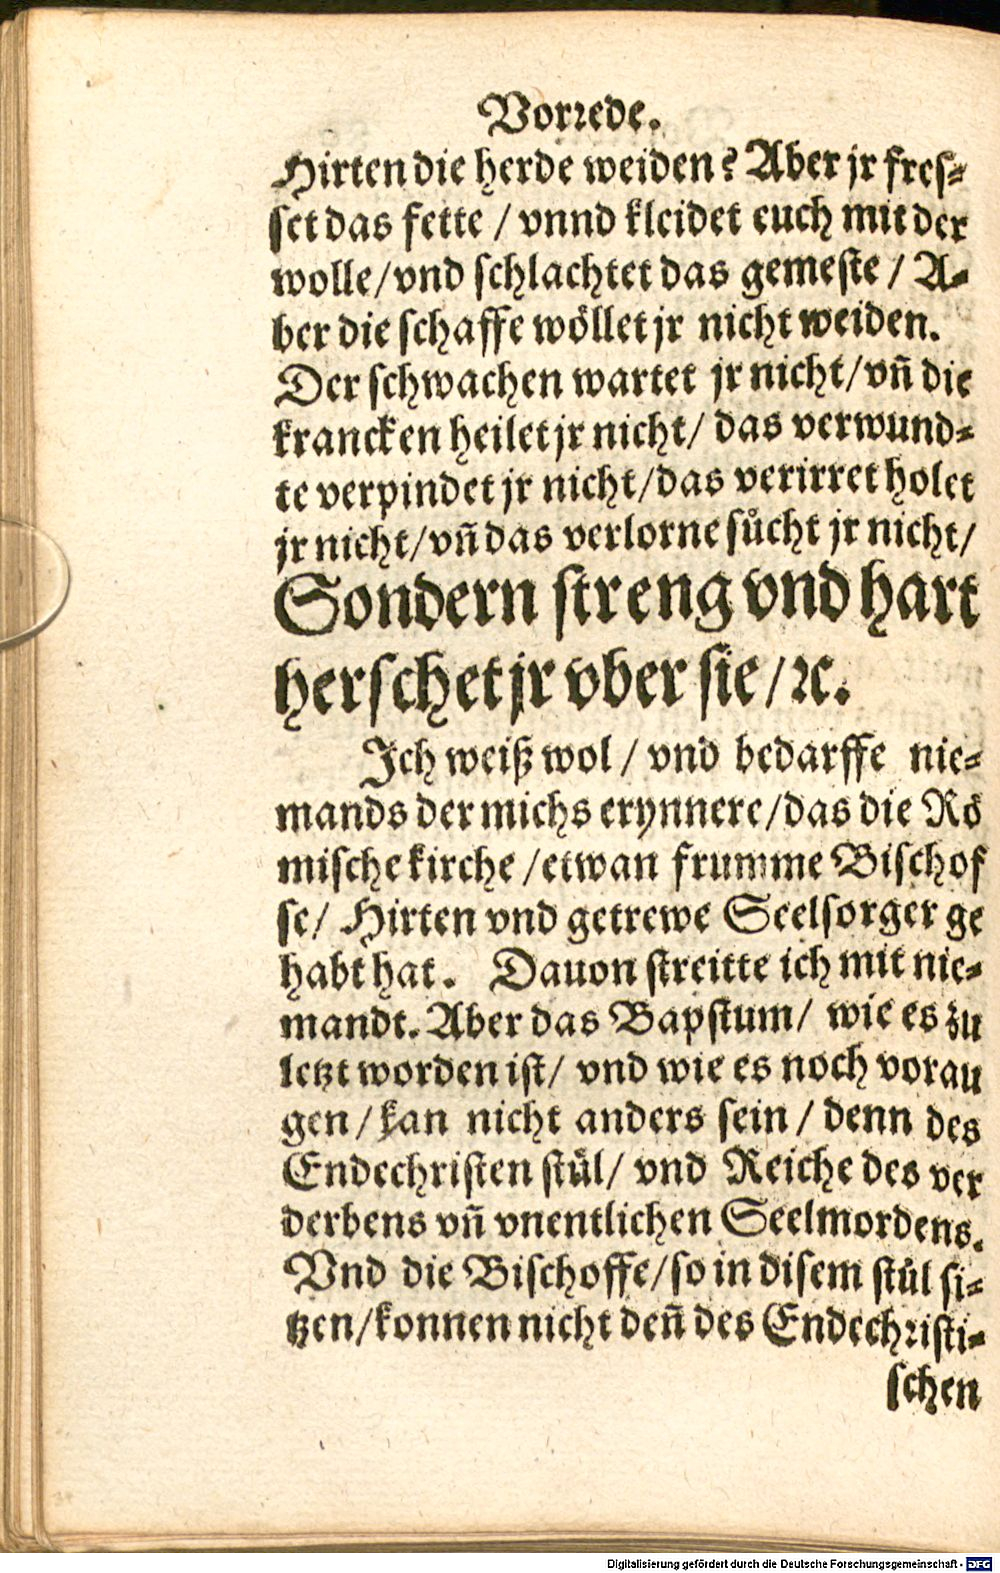 Vorrede.
Hirten die herde weiden? Aber jr fres-
set das fette / vnnd kleidet euch mit der
wolle/vnd schlachtet das gemeste / A-
ber die schaffe wöllet jr nicht weiden.
Der schwachen wartet jr nicht/vñ die
krancken heilet jr nicht/ das verwund-
te verpindet jr nicht/das verirret holet
jr nicht/vñ das verlorne sůcht jr nicht/
Sondern streng vnd hart
herschet jr vber sie/ꝛc.
Ich weiß wol / vnd bedarffe nie-
mands der michs erynnere/das die Rö
mische kirche /etwan frumme Bischof
fe/ Hirten vnd getrewe Seelsorger ge
habt hat. Dauon streitte ich mit nie-
mandt. Aber das Bapstum/ wie es zu
letzt worden ist/ vnd wie es noch vorau
gen/kan nicht anders sein/ denn des
Endechristen stůl/ vnd Reiche des ver
derbens vñ vnentlichen Seelmordens.
Vnd die Bischoffe/so in disem stůl si-
tzen/konnen nicht deñ des Endechristi-
schen
Digitalisierung gefördert durch die Deutsche Forschungsgemeinschaft - DFG